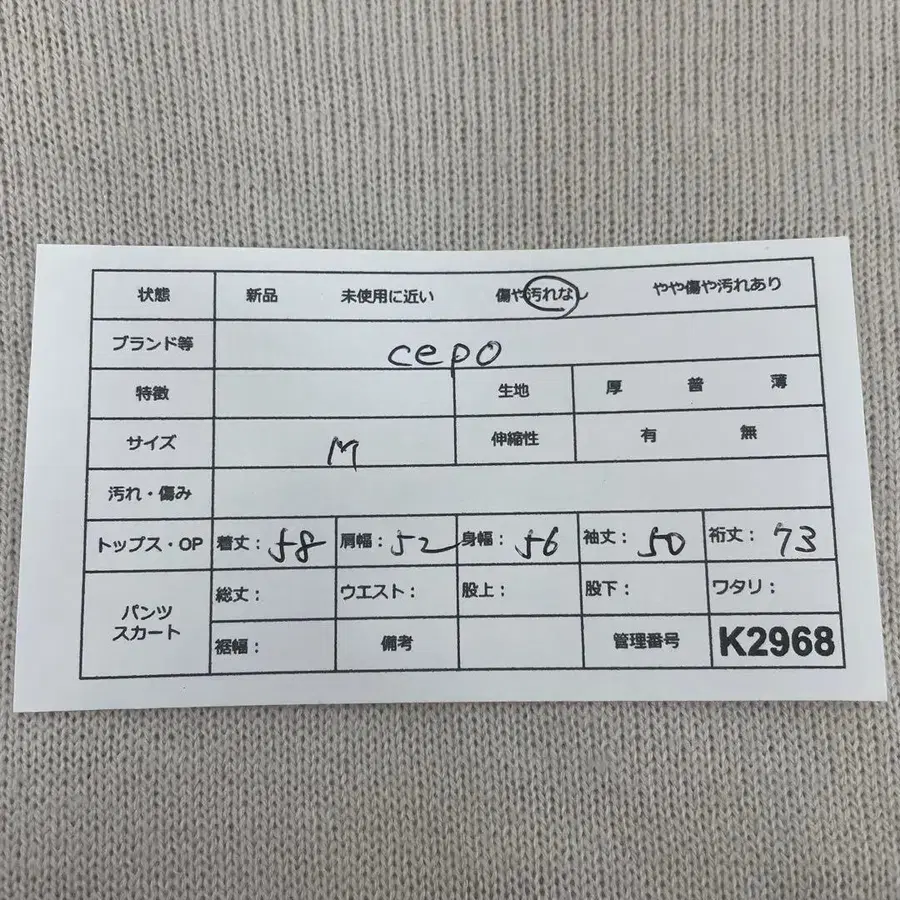 状態 新品 未使用に近い 傷や汚れなし やや傷や汚れあり
ブランド等 cepo
特徴 生地 厚 普 薄
サイズ M 伸縮性 有 無
汚れ・傷み
トップス・OP 着丈：58 肩幅：52 身幅：56 袖丈：50 裄丈：73
パンツ スカート 総丈： ウエスト： 股上： 股下： ワタリ：
裾幅： 備考 管理番号 K2968